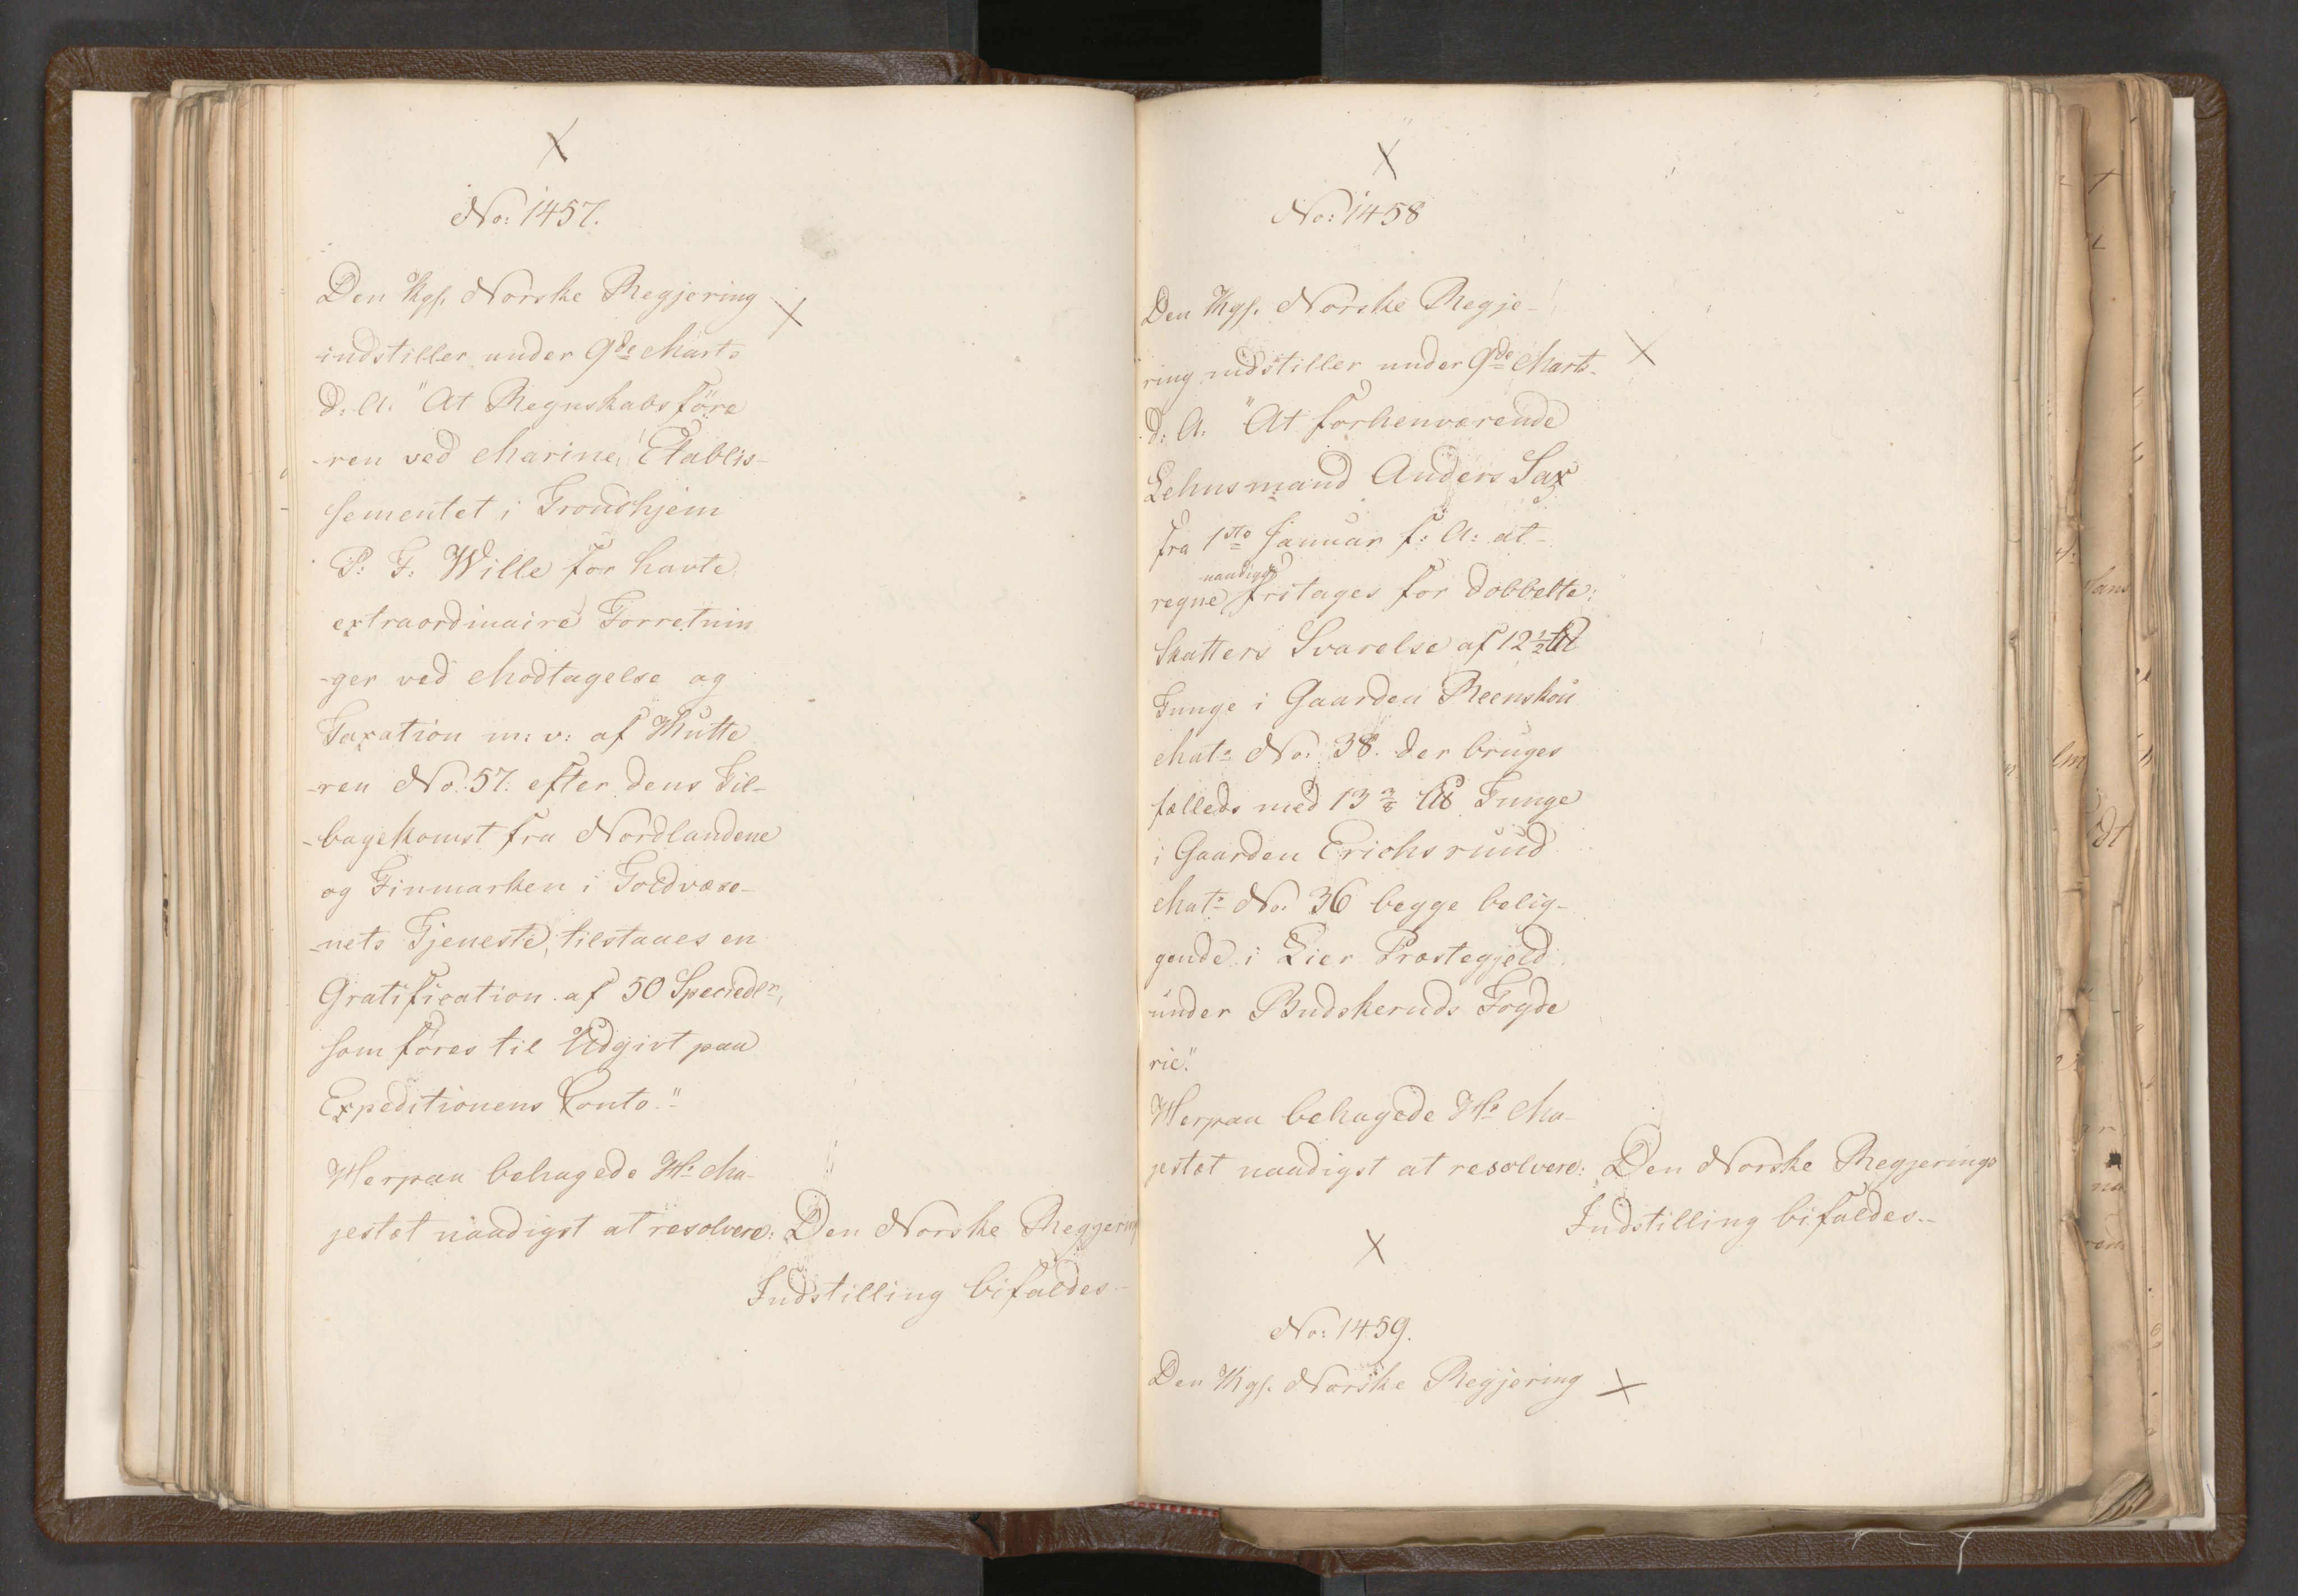 No: 1457.
Den Kgl. Norske Regjering
indstiller under 9de Marts
d: A: "At Regnskabsføre
-ren ved Marine Etablis-
sementet i Trondhjem
P: F: Wille for havte
extraordinaire Forretnin
-ger ved Modtagelse og
Taxation m: v: af Kutte
-ren No: 57. efter dens Til-
-bagekomst fra Nordlandene
og Finmarken i Toldvæse-
-nets Tjeneste, tilstaaes en
Gratification af 50 Speciedlr,
som føres til Udgivt paa
Expeditionens Conto."
Herpaa behagede Hs Ma-
jestæt naadigst at resolvere: Den Norske Regjering
Indstilling bifaldes.-
No: 1458
Den Kgl. Norske Regje-
ring indstiller under 9de Marts
d: A: "At forhenværende
Lehnsmand Anders Sax
fra 1ste Januar f: A: at
regne naadigst fritages for dobbelte
Skatters Svarelse af 12 1/2 ℔
Tunge i Gaarden Reenskou
Mat: No: 38. der bruges
fælleds med 13 3/8 ℔ Tunge
i Gaarden Erichsruud
Mat: No: 36 begge belig-
gende i Lier Præstegjeld
under Budskeruds Fogde
rie."
Herpaa behagede Hs Ma-
jestæt naadigst at resolvere: Den Norske Regjerings
Indstilling bifaldes.-
No: 1459.
Den Kgl. Norske Regjering